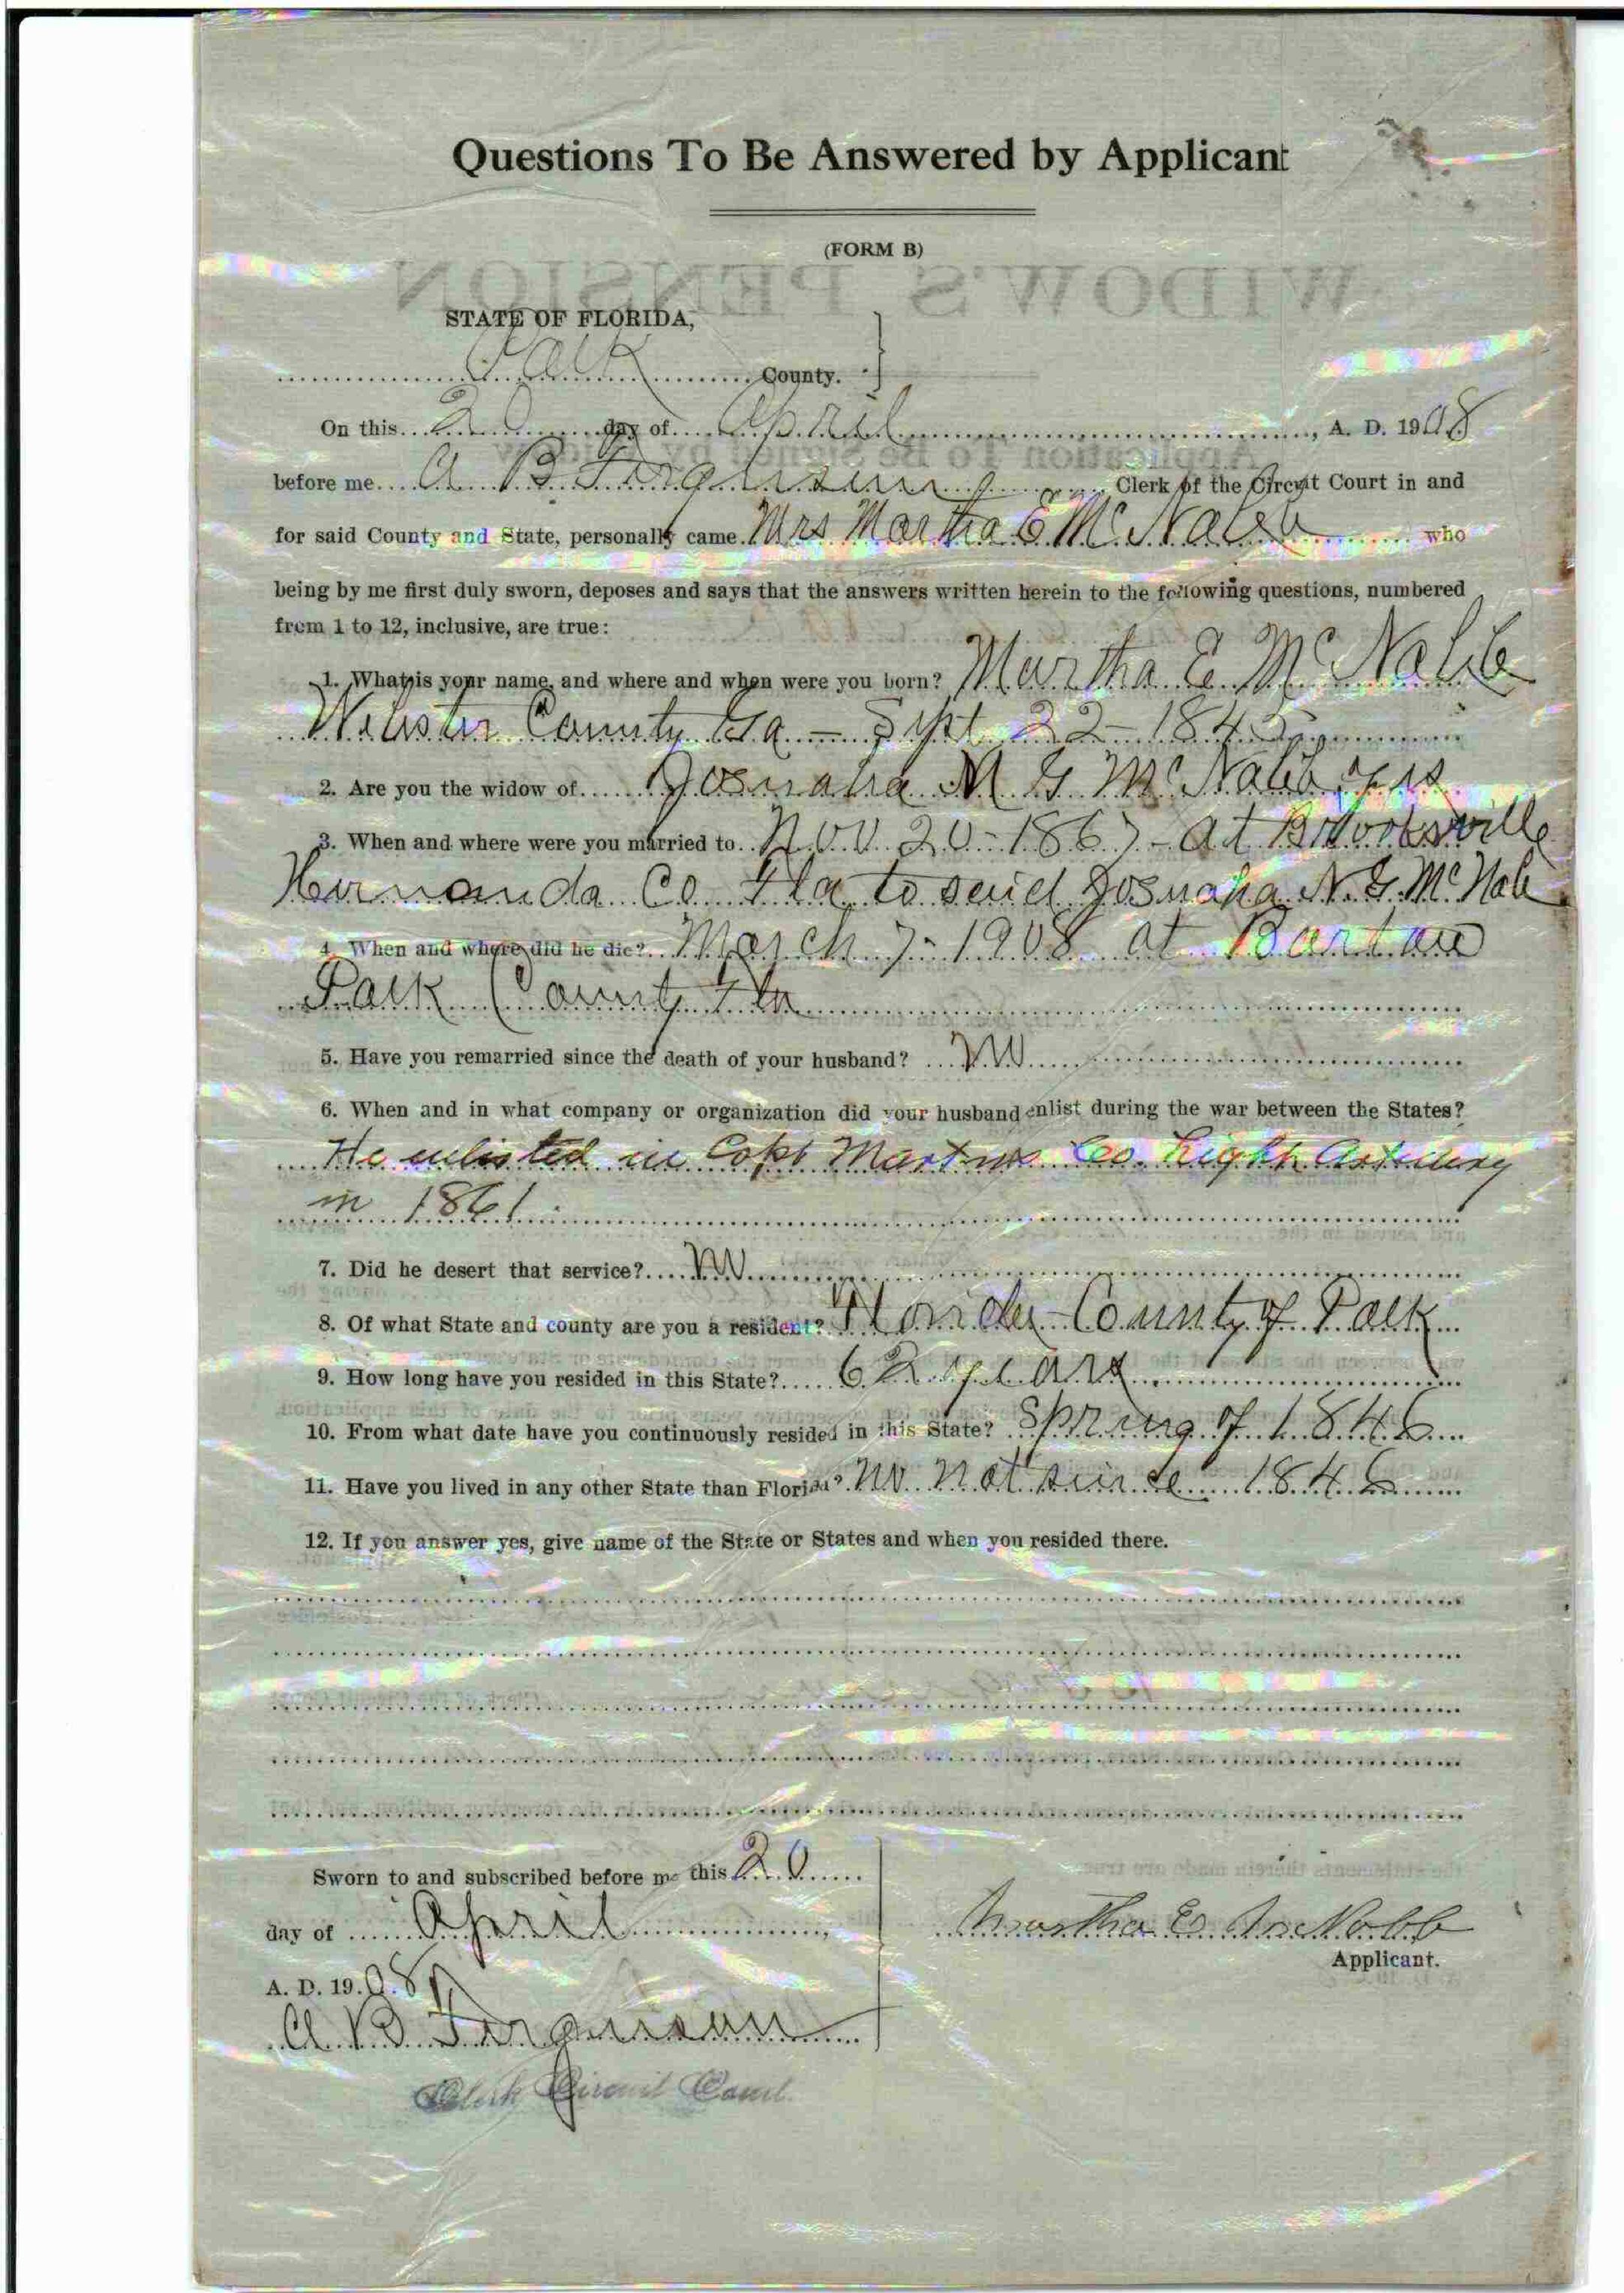 Questions To Be Answered by Applicant
(FORM B)
WIDOW'S PENSION
STATE OF FLORIDA,
Polk County.
On this 20 day of April, A. D. 1908
before me A B Ferguson Clerk of the Circuit Court in and
for said County and State, personally came Mrs Martha E McNabb who
being by me first duly sworn, deposes and says that the answers written herein to the following questions, numbered
from 1 to 12, inclusive, are true:
1. What is your name, and where and when were you born? Martha E McNabb
Webster County Ga - Sept 22 - 1845
2. Are you the widow of McNabb yes
3. When and where were you married to Nov 20 - 1867 - at Brooksville
Hernando Co Fla to said McNab
4. When and where did he die? March 7 - 1908 at Bartow
Polk County Fla
5. Have you remarried since the death of your husband? No
6. When and in what company or organization did your husband enlist during the war between the States?
He enlisted in Capt Martins Co. Light Artillery
in 1861
7. Did he desert that service? No
8. Of what State and county are you a resident? Florida County of Polk
9. How long have you resided in this State? 62 years
10. From what date have you continuously resided in this State? Spring of 1846
11. Have you lived in any other State than Florida? No not since 1846
12. If you answer yes, give name of the State or States and when you resided there.
Sworn to and subscribed before me this 20
day of April,
A. D. 1908
A B Ferguson
Clerk Circuit Court.
Martha E McNabb
Applicant.